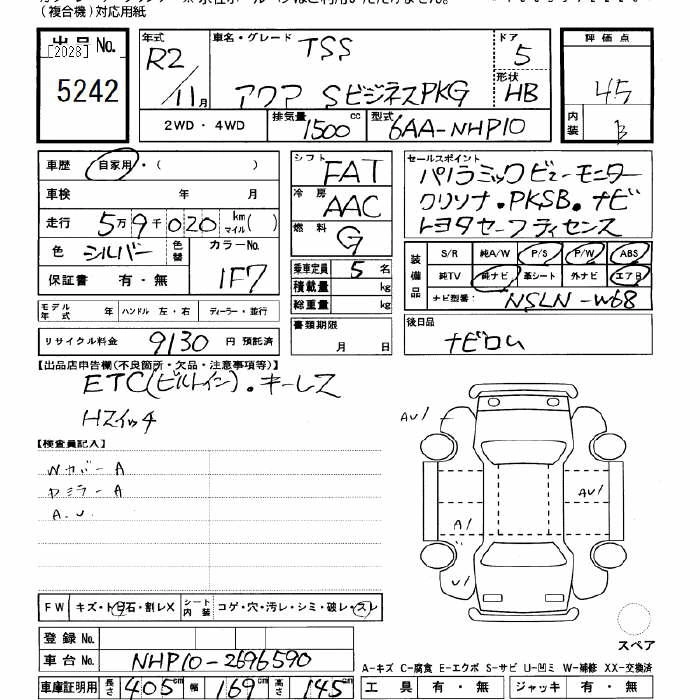 (複合機)対応用紙
出品 No.
[2028]
5242
年式 R2/11月
車名・グレード TSS
アクア SビジネスPKG
ドア 5
形状 HB
評価点 4.5
内装 B
2WD・4WD 排気量 1500 cc 型式 6AA-NHP10
車歴 自家用・( )
車検 年 月
走行 5万9千020 km マイル( )
色 シルバー 色替 カラーNo. 1F7
保証書 有・無
モデル年式 年 ハンドル 左・右 ディーラー・並行
リサイクル料金 9130 円 預託済
シフト FAT
冷房 AAC
燃料 G
乗車定員 5 名
積載量 kg
総重量 kg
書類期限
月 日
セールスポイント
パノラミックビューモニター
クリソナ・PKSB・ナビ
トヨタセーフティセンス
装備品
S/R 純A/W P/S P/W ABS
純TV 純ナビ 革シート 外ナビ エアB
ナビ型番: NSLN-W68
後日品
ナビロム
【出品店申告欄(不良箇所・欠品・注意事項等)】
ETC(ビルトイン)・キーレス
Hスイッチ
【検査員記入】
Wカバー A
Dミラー A
A.U.
AU1
AU1
A1
U1
FW キズ・ト石・割レX シート内装 コゲ・穴・汚レ・シミ・破レ・スレ
スペア
登録 No.
車台 No. NHP10-2696590
A-キズ C-腐食 E-エクボ S-サビ U-凹ミ W-補修 XX-交換済
車庫証明用 長さ 405cm 幅 169cm 高さ 145cm
工具 有・無 ジャッキ 有・無